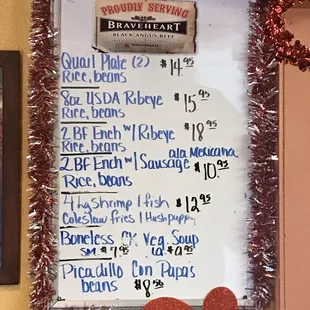 PROUDLY SERVING
BRAVEHEART
BLACK ANGUS BEEF
Quail Plate (2) $14.95
Rice, beans
8oz USDA Ribeye $15.95
Rice, beans
2 BF Ench w/ Ribeye $18.95
Rice, beans
2 BF Ench w/ Sausage a la Mexicana
Rice, beans $10.95
4 Lg Shrimp 1 fish $12.95
Coleslaw fries 1 Hushpuppy
Boneless CK Veg. Soup
sm. $7.95 LG $9.95
Picadillo Con Papas
beans $8.50